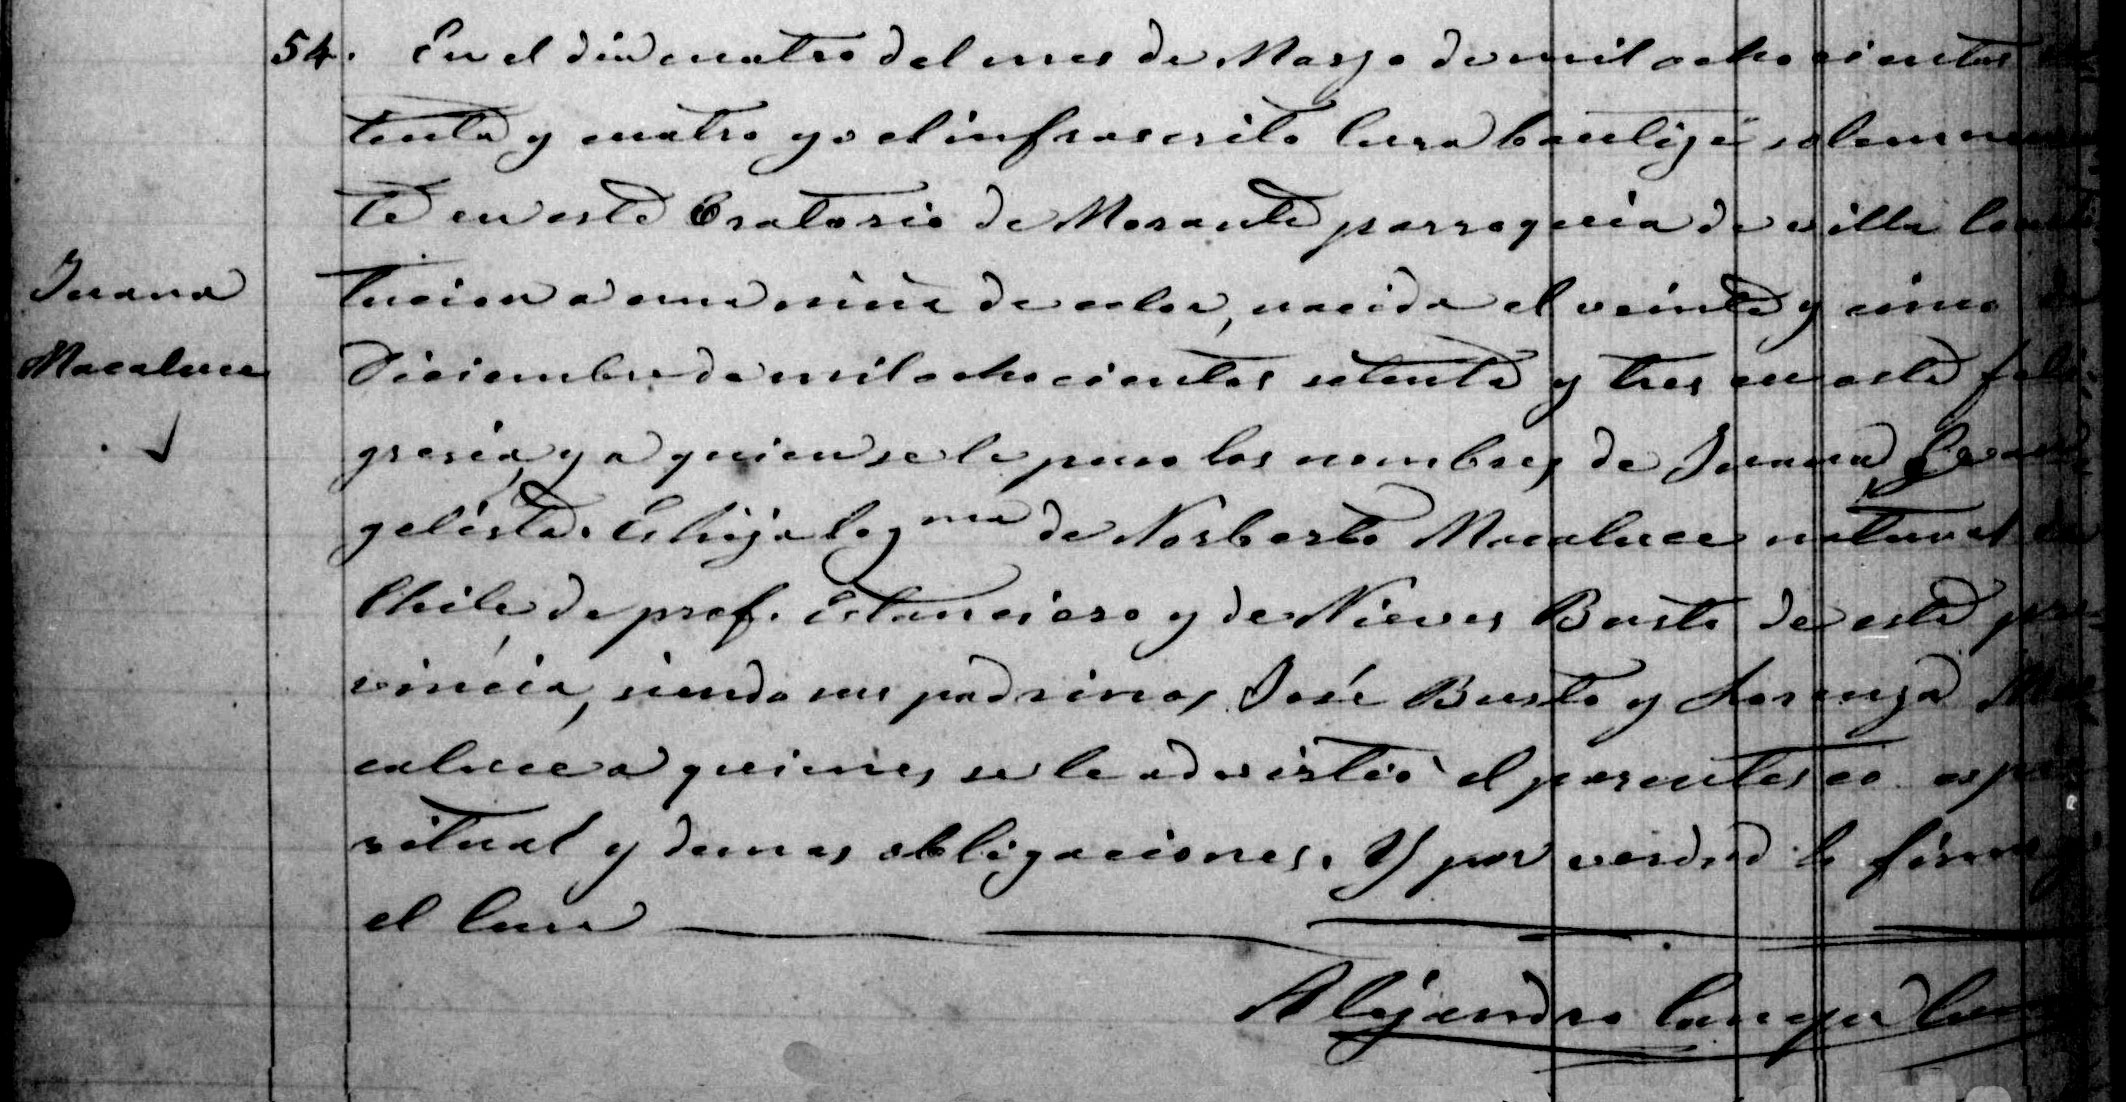 54. En el dia cuatro del mes de Marzo de mil ochocientos se
tenta y cuatro yo el infrascrito Cura bauticé solemnemen
te en este Oratorio de Morante parroquia de villa Consti
tucion a una niña de color, nacida el veinte y cinco de
Juana
Macaluce
Diciembre de mil ochocientos setenta y tres en esta feli
gresía, y a quien se le puso los nombres de Juana Evan
gelista. Es hija leg.ma de Norberto Macaluce natural de
Chile, de prof. Estanciero y de Nieves Busto de esta pro
vincia, siendo sus padrinos José Busto y Lorenza Ma
caluce a quienes se le advirtió el parentesco espi
ritual y demas obligaciones. Y por verdad lo firmo
el Cura
Alejandro